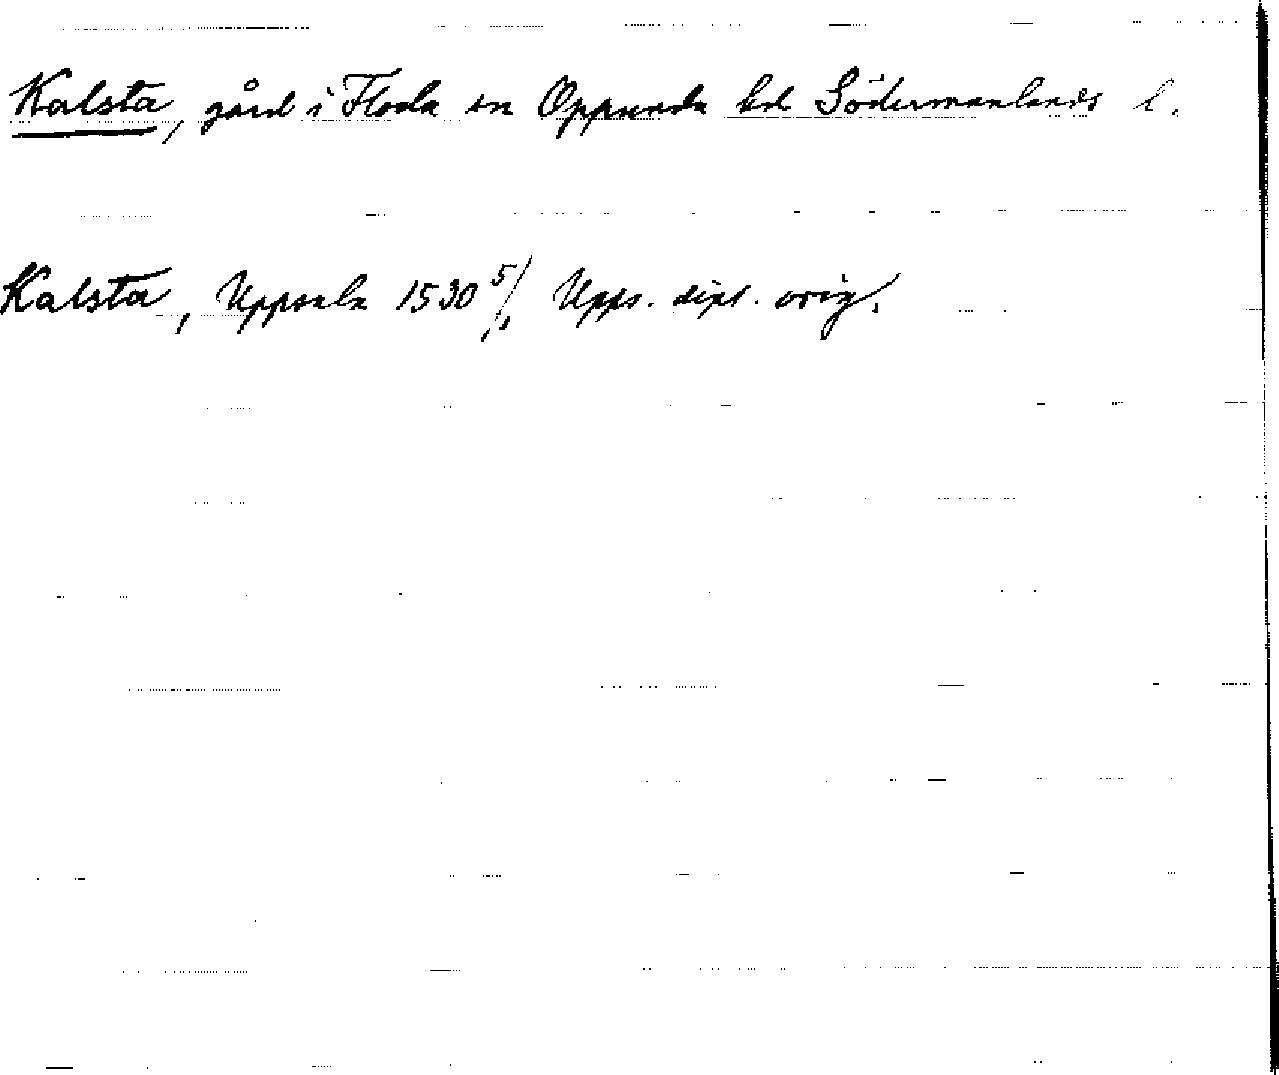 Kalsta, gård i Floda sn Oppunda hd Södermanlands l.
Kalsta, Uppsala 1530 5/1, Upps. dipl. orig.